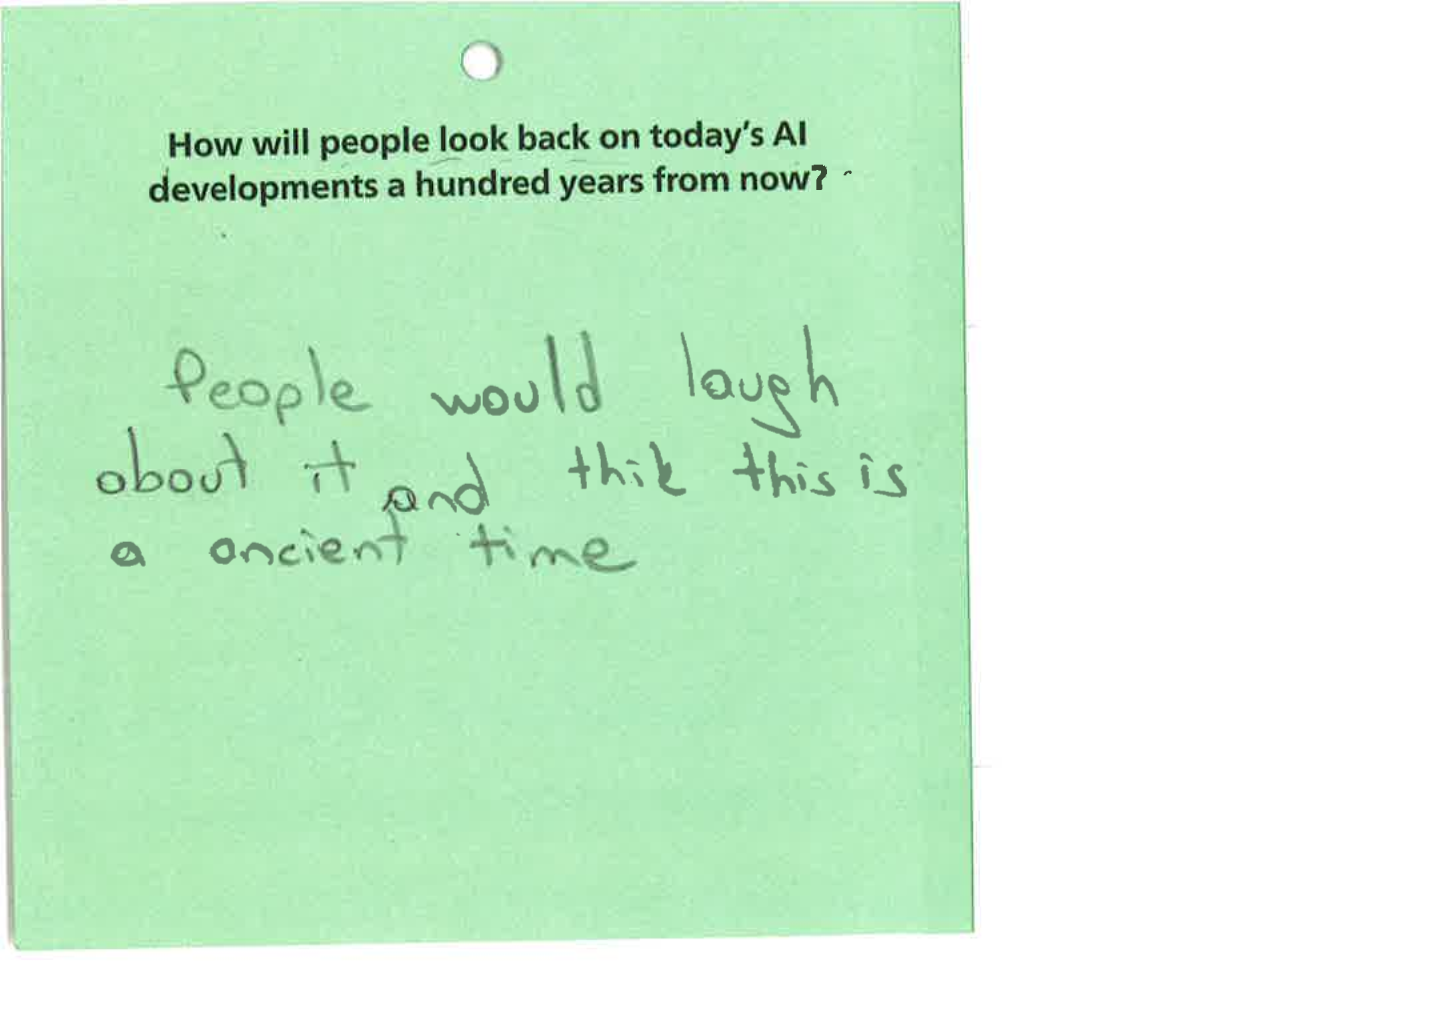 How will people look back on today's AI
developments a hundred years from now?
People would laugh
about it and thik this is
a ancient time